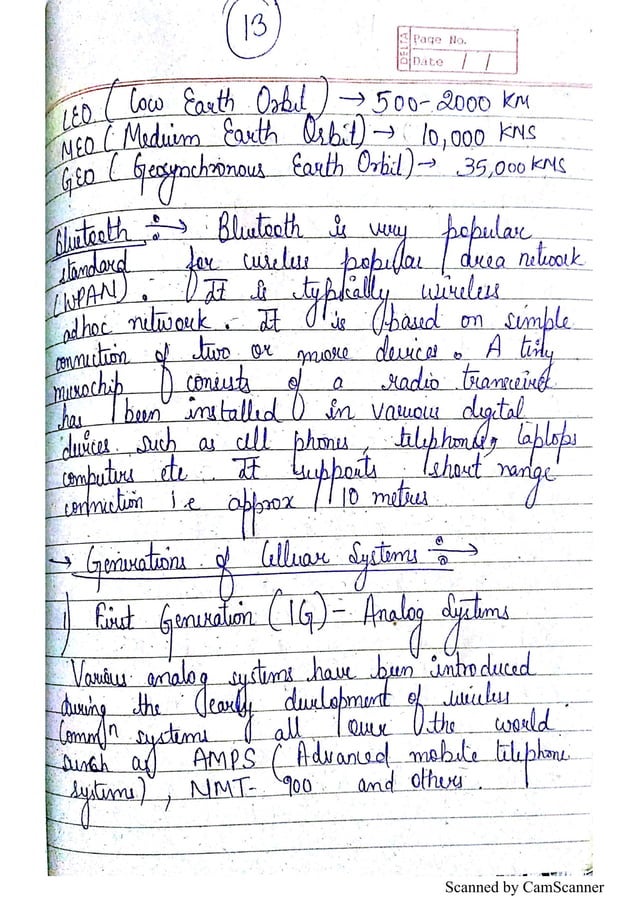 13
DELTA
Page No.
Date / /
LEO (Low Earth Orbit) → 500-2000 KM
MEO (Medium Earth Orbit) → 10,000 KMS
GEO (Geosynchronous Earth Orbit) → 35,000 KMS
Bluetooth ÷→ Bluetooth is very popular
standard for wireless popular area network
(WPAN). It is typically wireless
adhoc network. It is based on simple
connection of two or more devices. A tiny
microchip consists of a radio
has been installed in various digital
devices such as cell phones, telephones, laptops
computers etc. It supports short range
connection i.e approx 10 metres
→ Generations of Celluar Systems ÷→
1) First Generation (1G) - Analog Systems
Various analog systems have been introduced
during the early development of wireless
Commⁿ systems all over the world
such as AMPS (Advanced mobile telephone
systems), NMT-900 and others.
Scanned by CamScanner